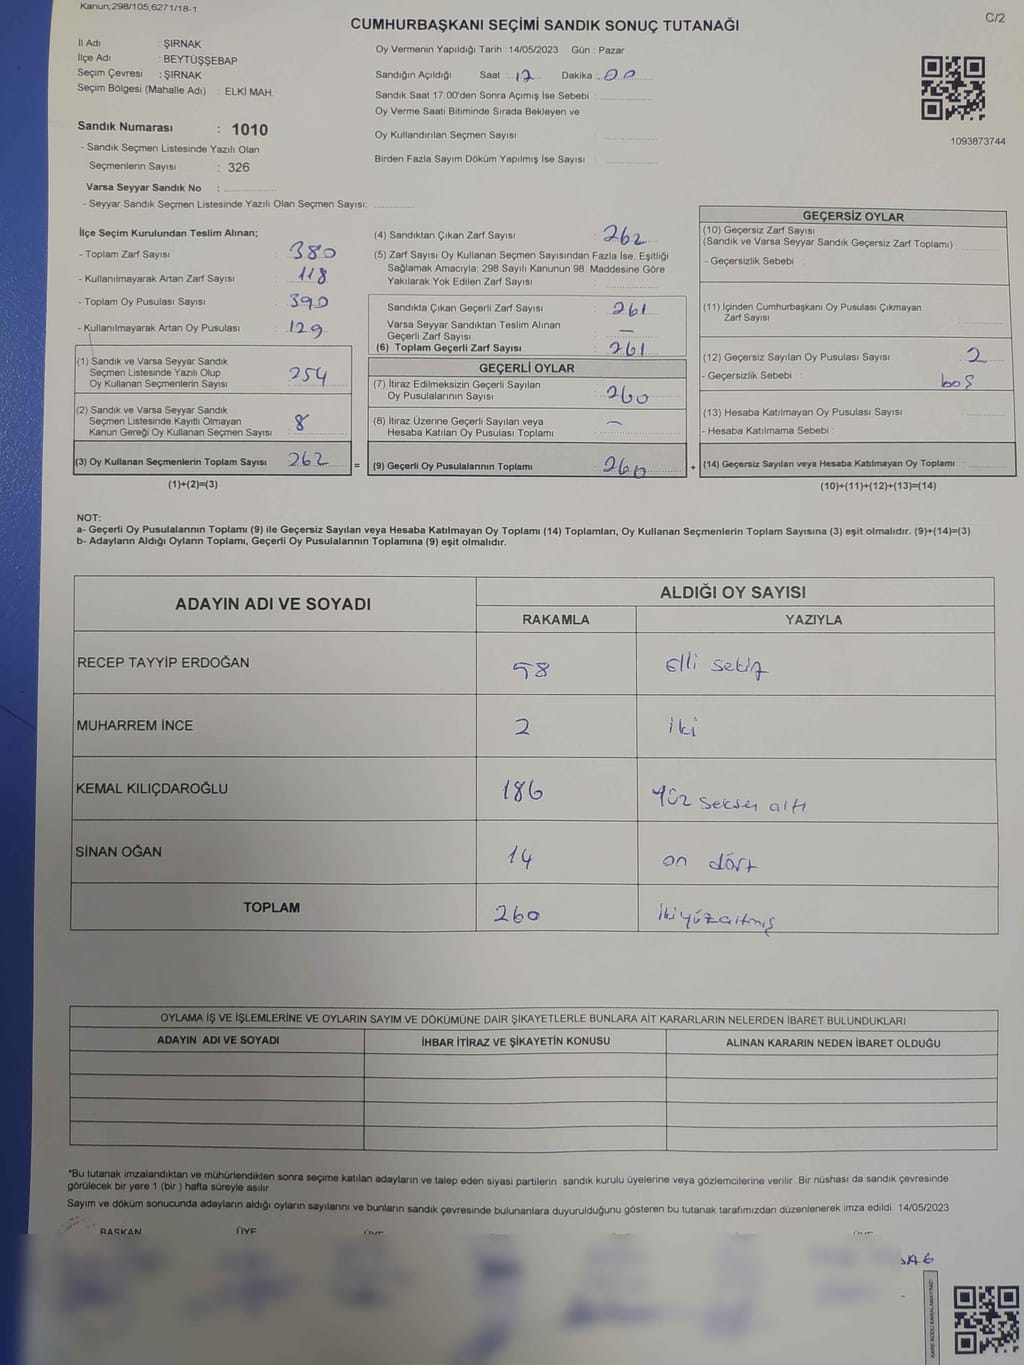 Kanun;298/105;6271/18-1
C/2
CUMHURBAŞKANI SEÇİMİ SANDIK SONUÇ TUTANAĞI
İl Adı : ŞIRNAK
İlçe Adı : BEYTÜŞŞEBAP
Seçim Çevresi : ŞIRNAK
Seçim Bölgesi (Mahalle Adı) : ELKİ MAH.
Sandık Numarası : 1010
- Sandık Seçmen Listesinde Yazılı Olan
Seçmenlerin Sayısı : 326
Varsa Seyyar Sandık No :
- Seyyar Sandık Seçmen Listesinde Yazılı Olan Seçmen Sayısı:
Oy Vermenin Yapıldığı Tarih : 14/05/2023 Gün : Pazar
Sandığın Açıldığı Saat : 12 Dakika : 00
Sandık Saat 17:00'den Sonra Açımış İse Sebebi :
Oy Verme Saati Bitiminde Sırada Bekleyen ve
Oy Kullandırılan Seçmen Sayısı :
Birden Fazla Sayım Döküm Yapılmış İse Sayısı :
1093873744
İlçe Seçim Kurulundan Teslim Alınan;
- Toplam Zarf Sayısı : 380
- Kullanılmayarak Artan Zarf Sayısı : 118
- Toplam Oy Pusulası Sayısı : 390
- Kullanılmayarak Artan Oy Pusulası : 129
(1) Sandık ve Varsa Seyyar Sandık
Seçmen Listesinde Yazılı Olup
Oy Kullanan Seçmenlerin Sayısı : 254
(2) Sandık ve Varsa Seyyar Sandık
Seçmen Listesinde Kayıtlı Olmayan
Kanun Gereği Oy Kullanan Seçmen Sayısı : 8
(3) Oy Kullanan Seçmenlerin Toplam Sayısı : 262 =
(1)+(2)=(3)
(4) Sandıktan Çıkan Zarf Sayısı : 262
(5) Zarf Sayısı Oy Kullanan Seçmen Sayısından Fazla İse, Eşitliği
Sağlamak Amacıyla; 298 Sayılı Kanunun 98. Maddesine Göre
Yakılarak Yok Edilen Zarf Sayısı :
Sandıkta Çıkan Geçerli Zarf Sayısı : 261
Varsa Seyyar Sandıktan Teslim Alınan
Geçerli Zarf Sayısı : —
(6) Toplam Geçerli Zarf Sayısı : 261
GEÇERLİ OYLAR
(7) İtiraz Edilmeksizin Geçerli Sayılan
Oy Pusulalarının Sayısı : 260
(8) İtiraz Üzerine Geçerli Sayılan veya
Hesaba Katılan Oy Pusulası Toplamı : —
(9) Geçerli Oy Pusulalarının Toplamı : 260 +
GEÇERSİZ OYLAR
(10) Geçersiz Zarf Sayısı
(Sandık ve Varsa Seyyar Sandık Geçersiz Zarf Toplamı) :
- Geçersizlik Sebebi :
(11) İçinden Cumhurbaşkanı Oy Pusulası Çıkmayan
Zarf Sayısı :
(12) Geçersiz Sayılan Oy Pusulası Sayısı : 2
- Geçersizlik Sebebi : boş
(13) Hesaba Katılmayan Oy Pusulası Sayısı :
- Hesaba Katılmama Sebebi :
(14) Geçersiz Sayılan veya Hesaba Katılmayan Oy Toplamı :
(10)+(11)+(12)+(13)=(14)
NOT:
a- Geçerli Oy Pusulalarının Toplamı (9) ile Geçersiz Sayılan veya Hesaba Katılmayan Oy Toplamı (14) Toplamları, Oy Kullanan Seçmenlerin Toplam Sayısına (3) eşit olmalıdır. (9)+(14)=(3)
b- Adayların Aldığı Oyların Toplamı, Geçerli Oy Pusulalarının Toplamına (9) eşit olmalıdır.
ADAYIN ADI VE SOYADI
ALDIĞI OY SAYISI
RAKAMLA YAZIYLA
RECEP TAYYİP ERDOĞAN 58 Elli sekiz
MUHARREM İNCE 2 iki
KEMAL KILIÇDAROĞLU 186 Yüz seksen altı
SİNAN OĞAN 14 on dört
TOPLAM 260 İkiyüzaltmış
OYLAMA İŞ VE İŞLEMLERİNE VE OYLARIN SAYIM VE DÖKÜMÜNE DAİR ŞİKAYETLERLE BUNLARA AİT KARARLARIN NELERDEN İBARET BULUNDUKLARI
ADAYIN ADI VE SOYADI İHBAR İTİRAZ VE ŞİKAYETİN KONUSU ALINAN KARARIN NEDEN İBARET OLDUĞU
*Bu tutanak imzalandıktan ve mühürlendikten sonra seçime katılan adayların ve talep eden siyasi partilerin sandık kurulu üyelerine veya gözlemcilerine verilir. Bir nüshası da sandık çevresinde
görülecek bir yere 1 (bir ) hafta süreyle asılır.
Sayım ve döküm sonucunda adayların aldığı oyların sayılarını ve bunların sandık çevresinde bulunanlara duyurulduğunu gösteren bu tutanak tarafımızdan düzenlenerek imza edildi. 14/05/2023
BAŞKAN ÜYE ÜYE ÜYE